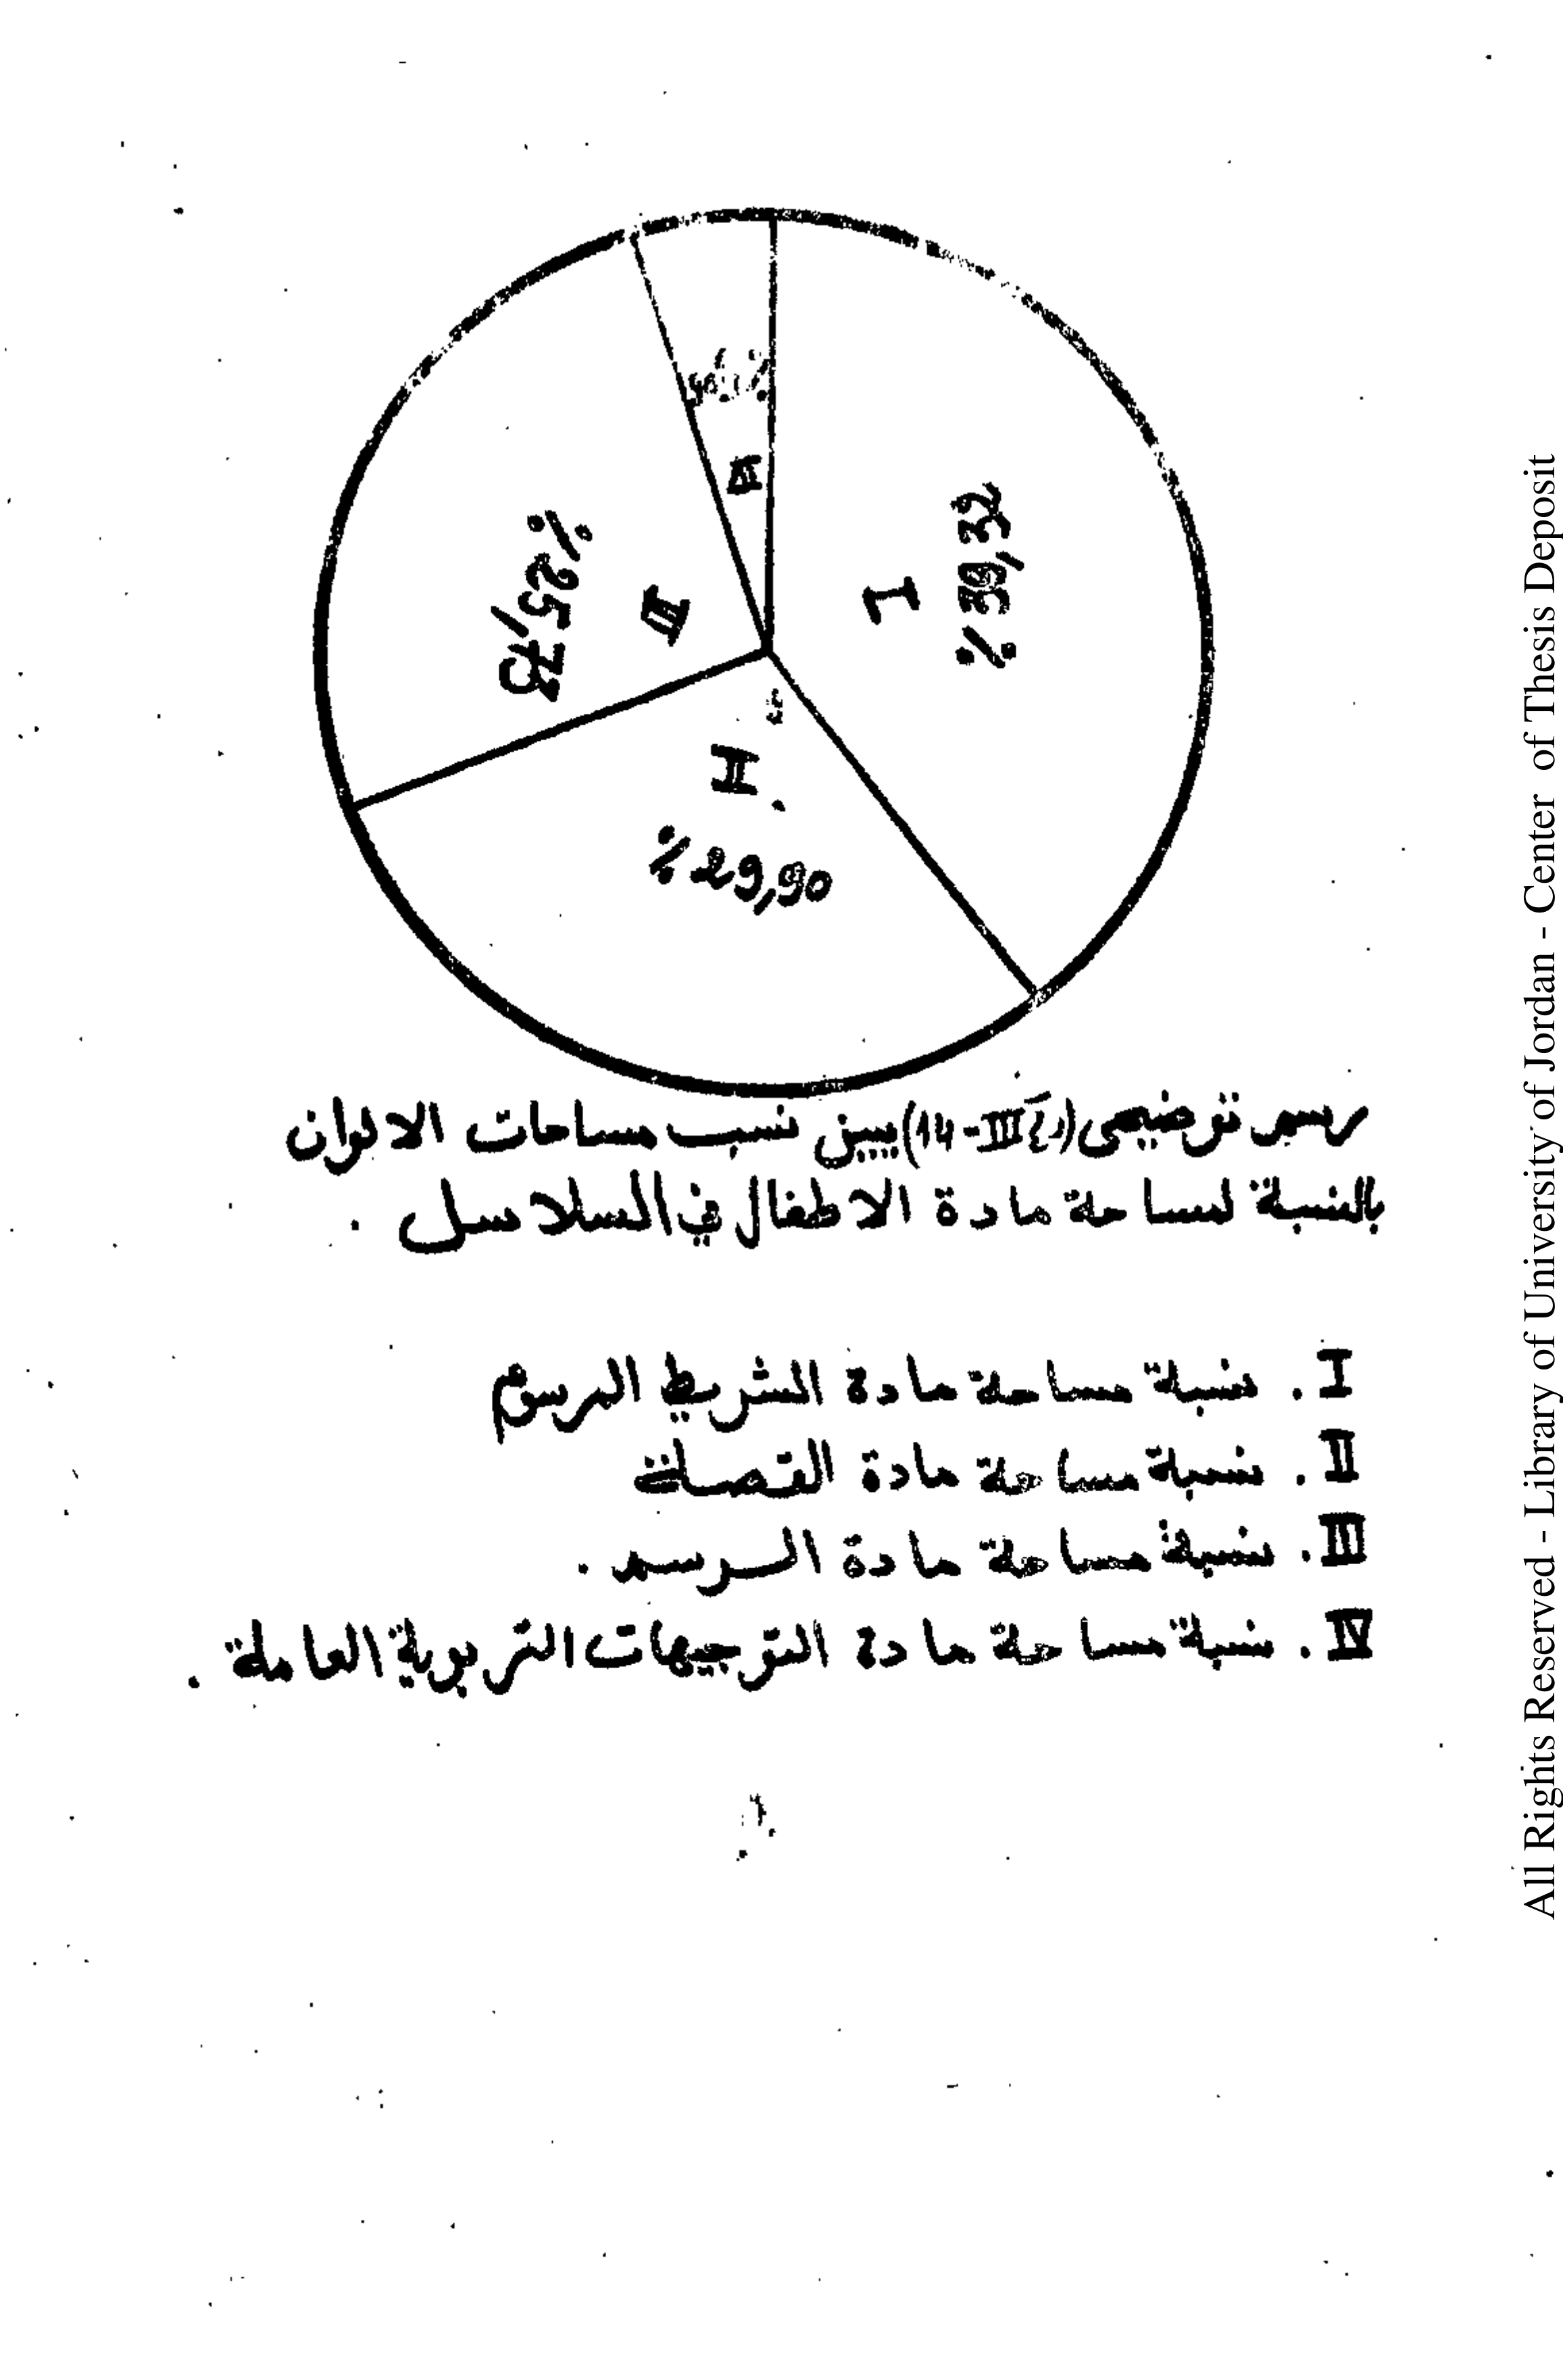 IV
I
% 39,32
III
% 25,73
II
% 29,90
رسم توضيحي (14-III) يبين نسب مساحات الالوان
بالنسبة لمساحة مادة الاطفال في السلاسل .
I. نسبة مساحة مادة الشريط المرسوم
II. نسبة مساحة مادة القصة
III. نسبة مساحة مادة الرسم .
IV. نسبة مساحة مادة التوجيهات التربوية العاملة .
All Rights Reserved - Library of University of Jordan - Center of Thesis Deposit